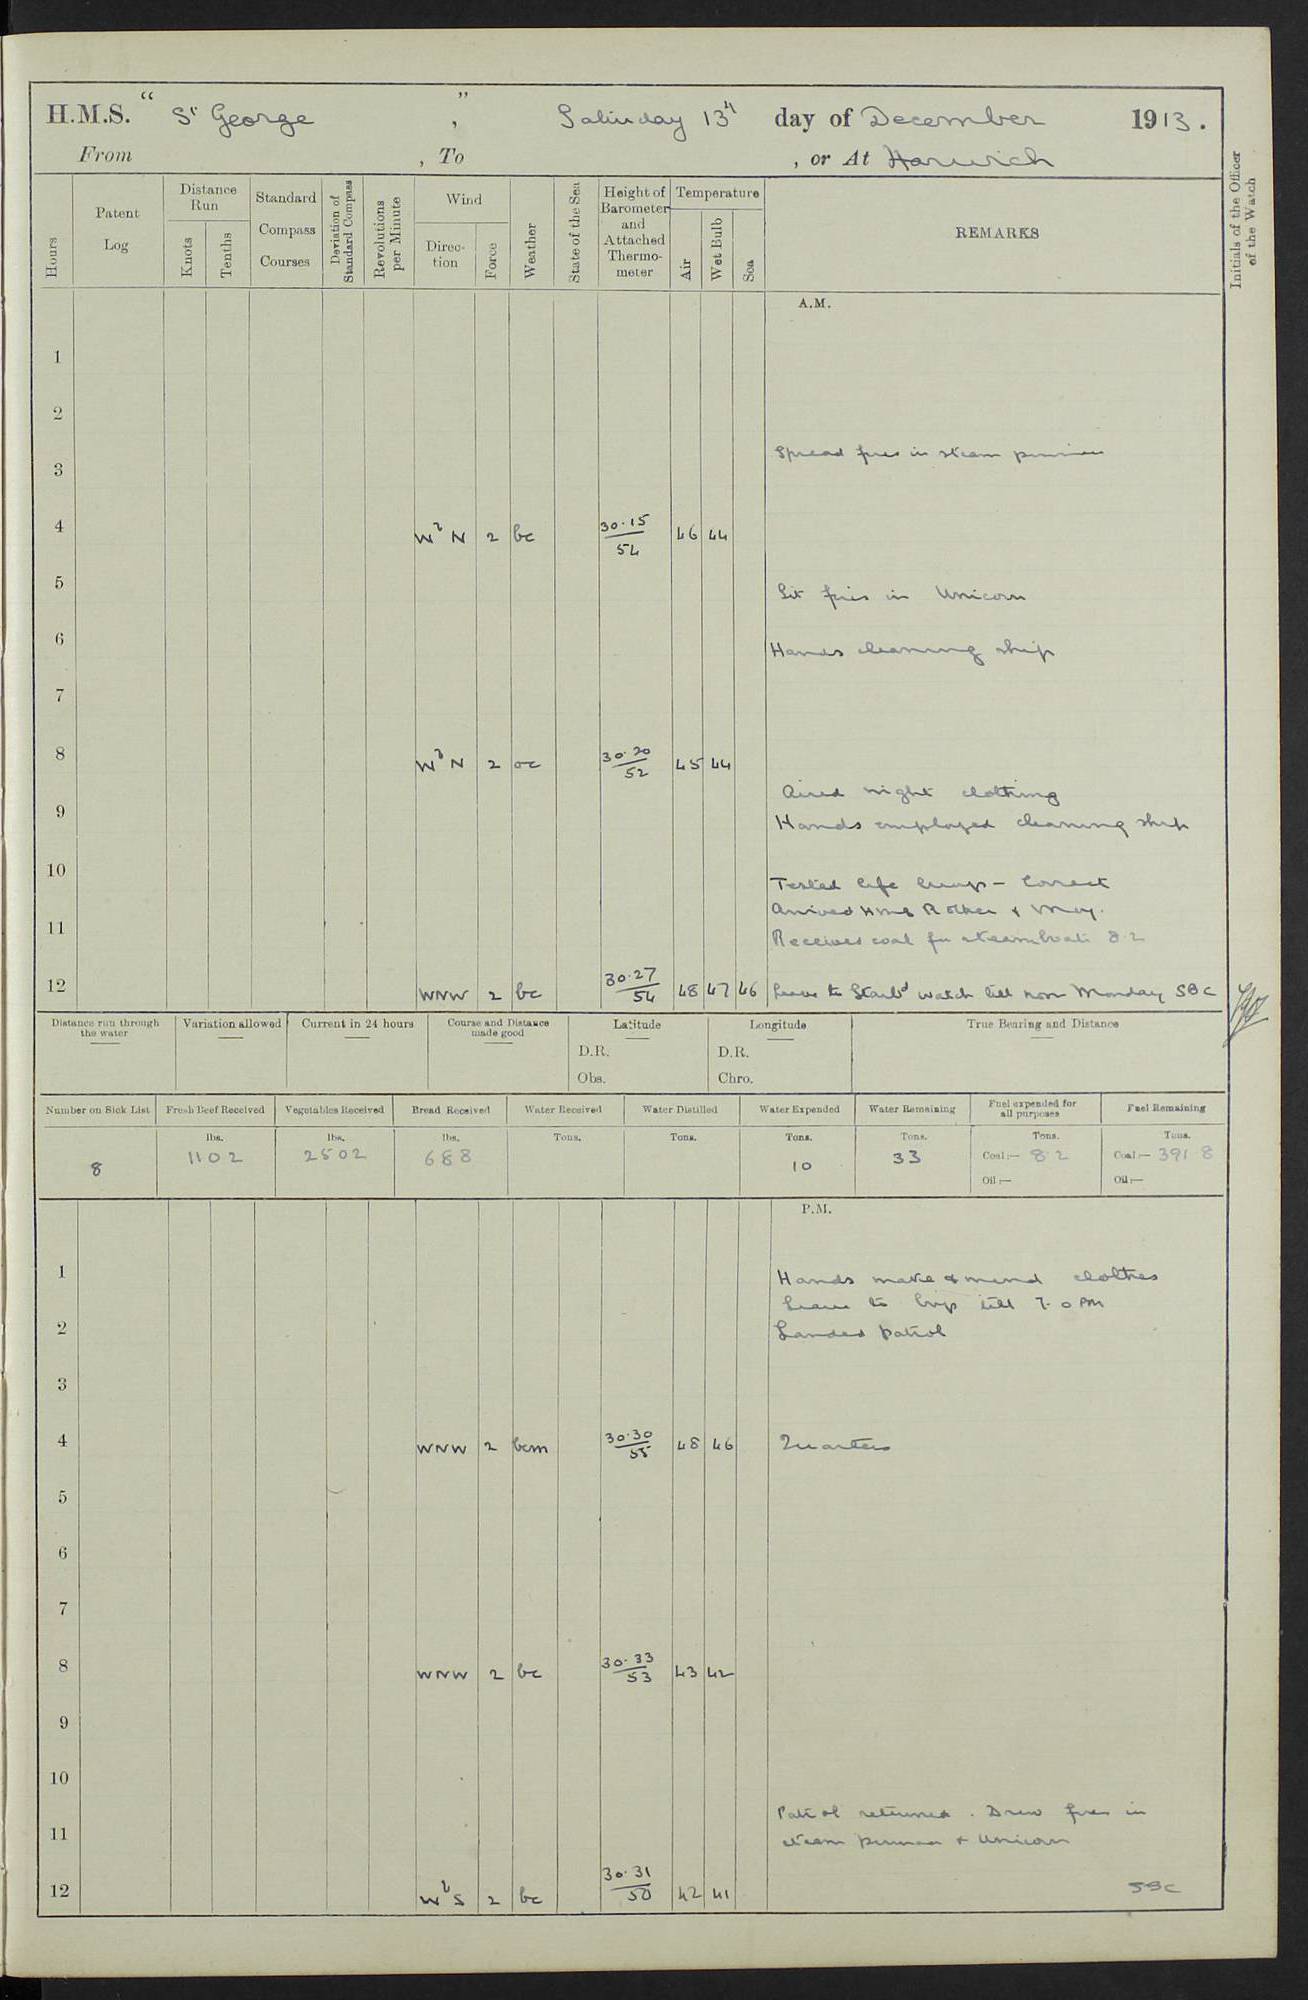 H.M.S. “ St George ” , Saturday 13th day of December 1913 .
From , To , or At Harwich
Hours Patent Log Distance Run Knots Tenths Standard Compass Courses Deviation of Standard Compass Revolutions per Minute Wind Direc-tion Force Weather State of the Sea Height of Barometer and Attached Thermo-meter Temperature Air Wet Bulb Sea REMARKS Initials of the Officer of the Watch
A.M.
1
2
Spread fires in steam pinnace
3
4 WbN 2 bc 30·15 54 46 44
5
Lit fires in Unicorn
6
Hands cleaning ship
7
8 WbN 2 oc 30·20 52 45 44
Aired night clothing
9
Hands employed cleaning ship
10
Tested life buoys – Correct
Arrived HMS Rother & Moy.
11
Received coal for steamboats 8·2
12 WNW 2 bc 30·27 54 48 47 46 Leave to Starbd watch till noon Monday SBC
Distance run through the water Variation allowed Current in 24 hours Course and Distance made good Latitude Longitude True Bearing and Distance
D.R. D.R.
Obs. Chro.
Number on Sick List Fresh Beef Received Vegetables Received Bread Received Water Received Water Distilled Water Expended Water Remaining Fuel expended for all purposes Fuel Remaining
lbs. lbs. lbs. Tons. Tons. Tons. Tons. Tons. Tons.
8 1102 2502 688 10 33 Coal:— 8·2 Coal:— 391·8
Oil:— Oil:—
P.M.
1
Hands make & mend clothes
Leave to boys till 7·0 PM
2
Landed patrol
3
4 WNW 2 bcm 30·30 55 48 46 Quarters
5
6
7
8 WNW 2 bc 30·33 53 43 42
9
10
Patrol returned. Drew fires in
11
steam pinnace & Unicorn
12 WbS 2 bc 30·31 50 42 41 SBC